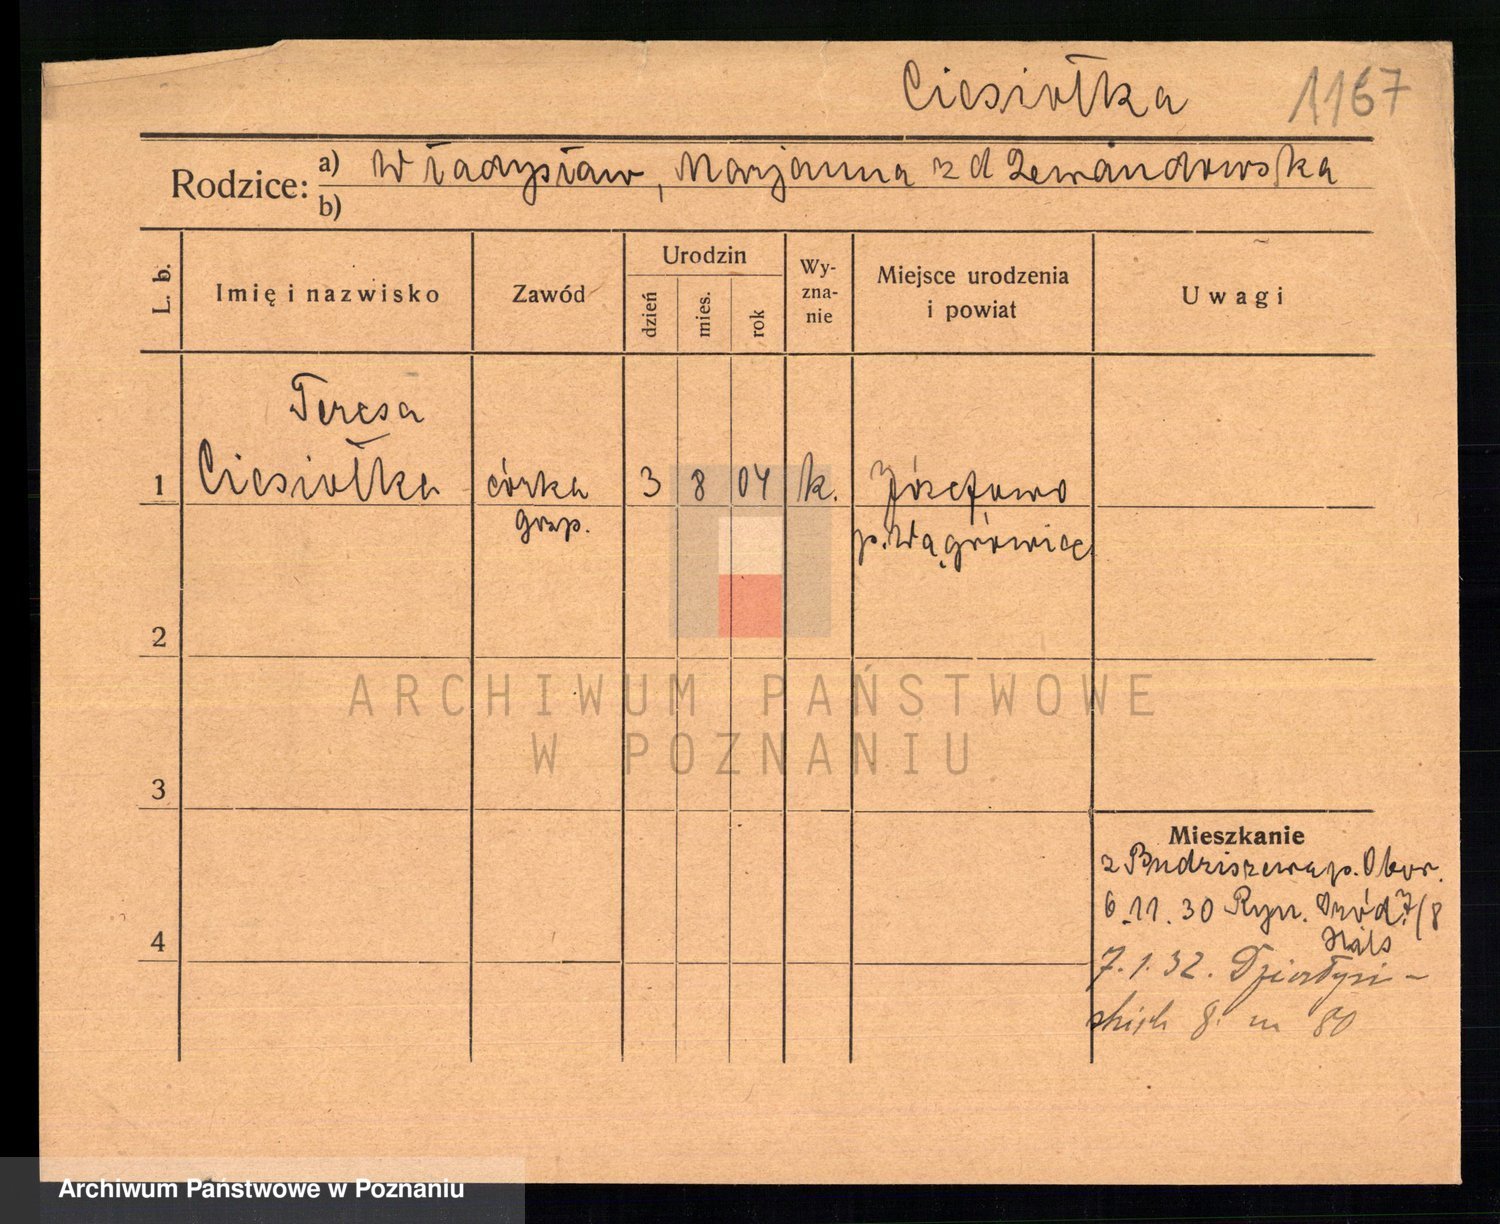 Ciesiołka 1167
Rodzice: a) Władysław, Marjanna z d Lewandowska
b)
L. b.
Imię i nazwisko
Zawód
Urodzin
dzień
mies.
rok
Wy-
zna-
nie
Miejsce urodzenia
i powiat
Uwagi
Teresa
1 Ciesiołka córka 3 8 04 k. Józefowo
gosp. p. Wągrówiec
2
3
4
Mieszkanie
z Budziszewa p. Obor.
6.11.30 Ryn. Śród. 7/8
7.1.32. Działyń-
skich 8. m 80
ARCHIWUM PAŃSTWOWE
W POZNANIU
Archiwum Państwowe w Poznaniu